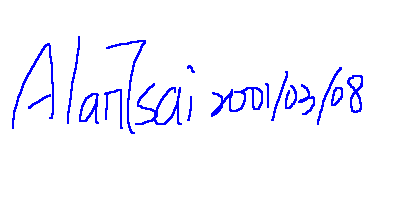 Alan Tsai 2001/03/08